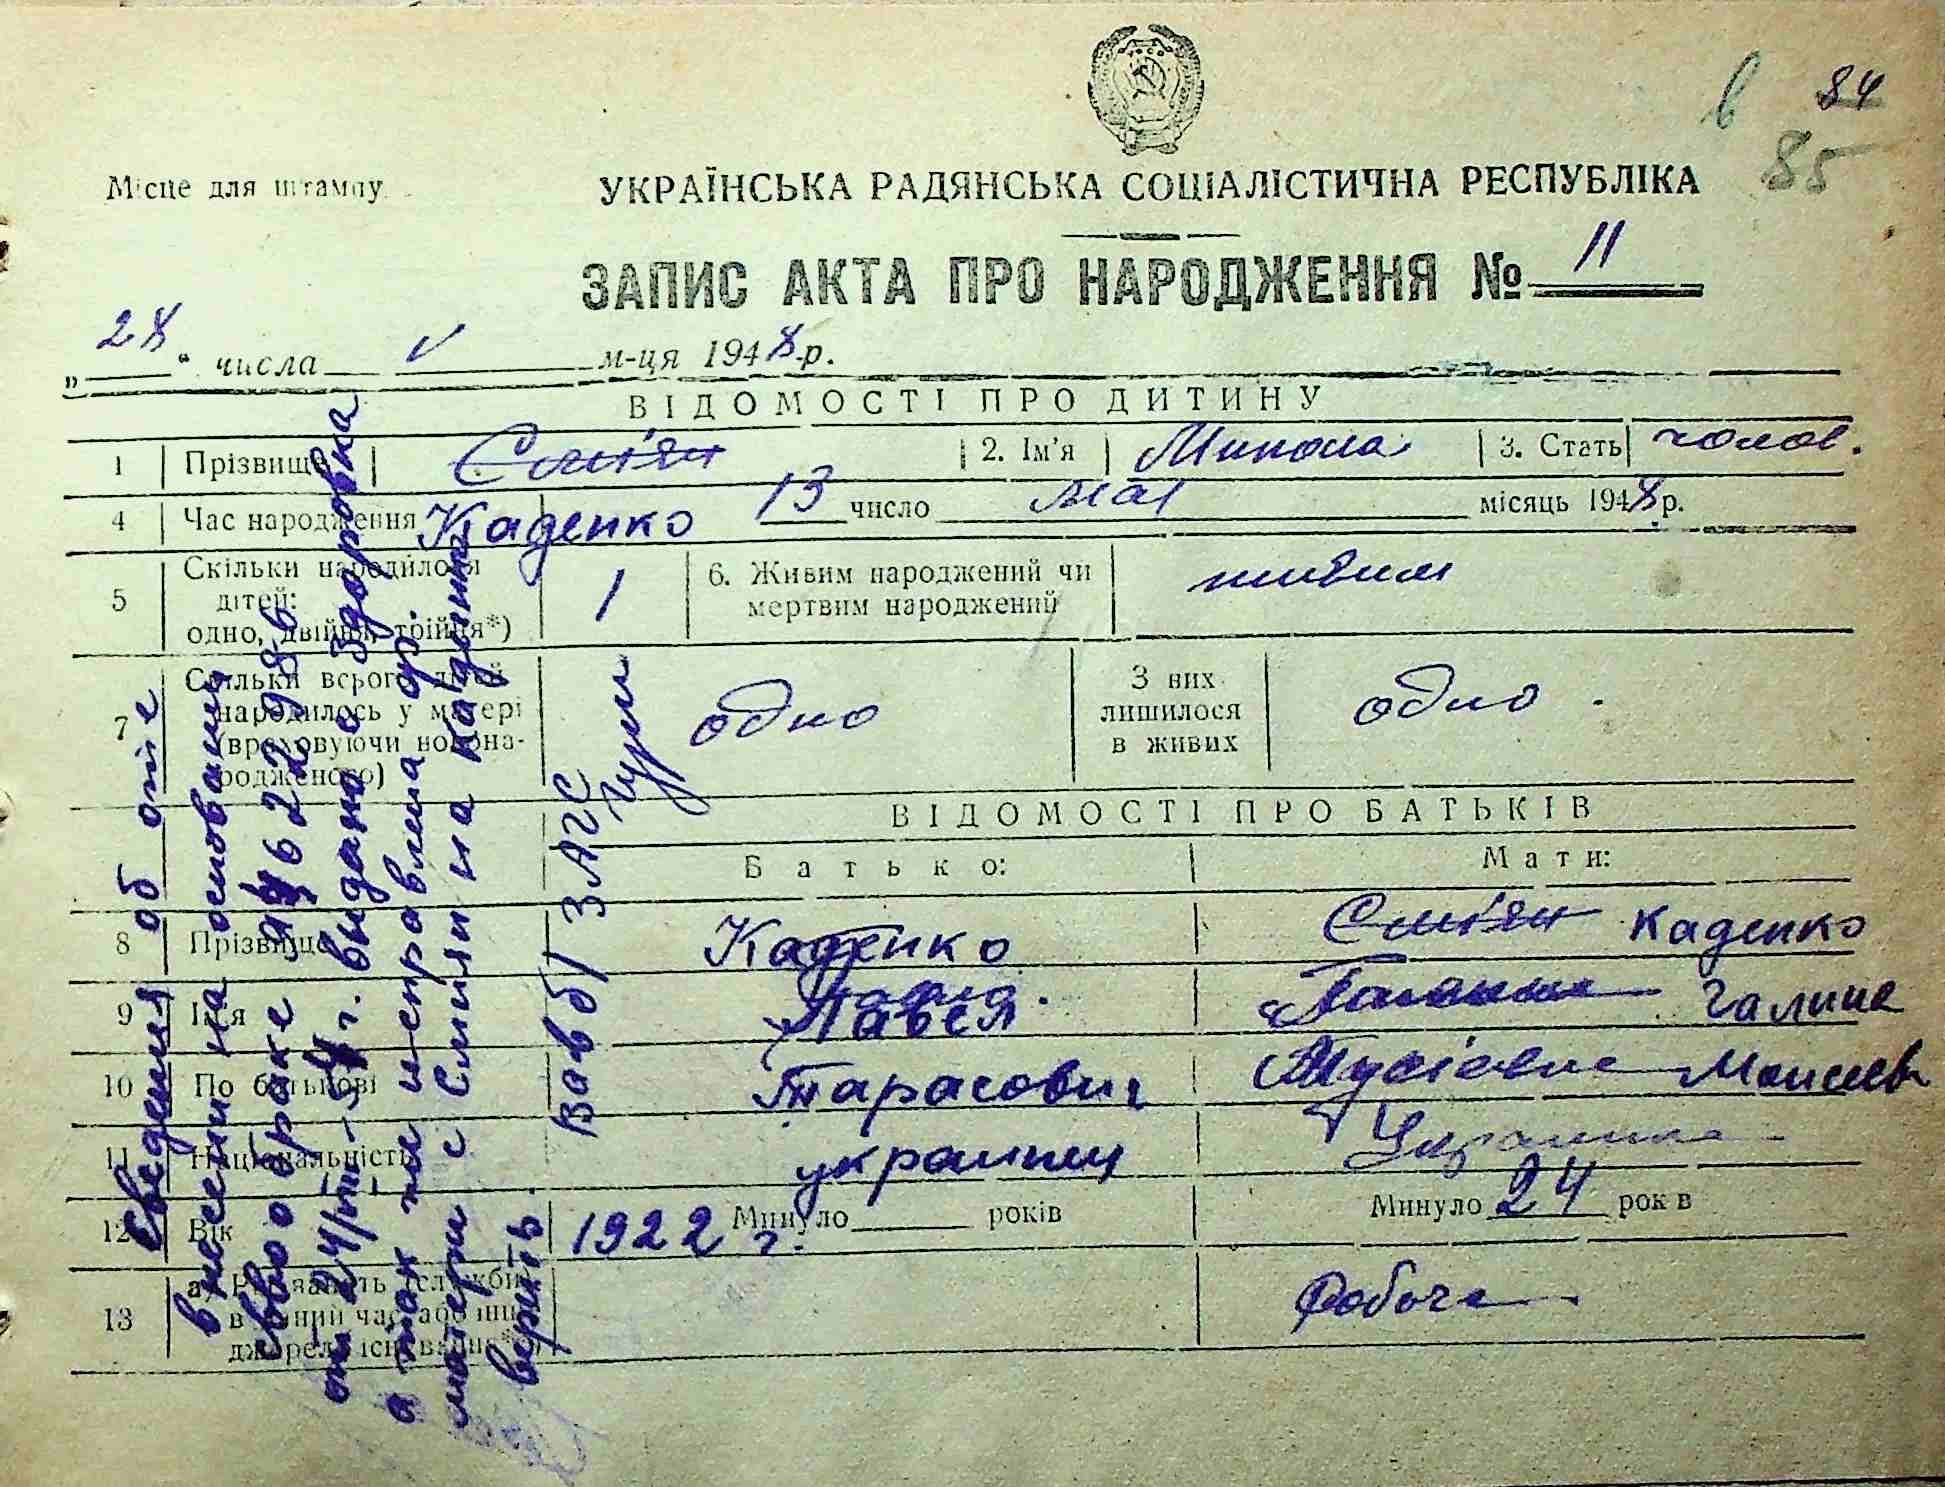 в 84
85
Місце для штампу
УКРАЇНСЬКА РАДЯНСЬКА СОЦІАЛІСТИЧНА РЕСПУБЛІКА
ЗАПИС АКТА ПРО НАРОДЖЕННЯ № 11
„ 28 " числа V м-ця 1948 р.
ВІДОМОСТІ ПРО ДИТИНУ
1 Прізвище Смі'ян 2. Ім'я Микола 3. Стать чолов.
Каденко
4 Час народження 13 число мая місяць 1948 р.
5 Скільки народилося дітей: одно, двійня, трійня*) 1 6. Живим народжений чи мертвим народжений живим
7 Скільки всього дітей народилось у матері (враховуючи новонародженого) одно З них лишилося в живих одно.
ВІДОМОСТІ ПРО БАТЬКІВ
Батько: Мати:
8 Прізвище Каденко Смі'ян Каденко
9 Ім'я Павел Галина
10 По батькові Тарасович Мусіевна Моисеев
11 Національність украинец Українка
12 Вік 1922 г. Минуло років Минуло 24 рок в
13 а) Робоча
Сведения об отце
внесены на основании
св-во о браке 462298б
от 24/ г. выдано с Здоровка
а так же исправлена ф.
матери с Смиян на Каденко
верить.
Зав б/ ЗАГС